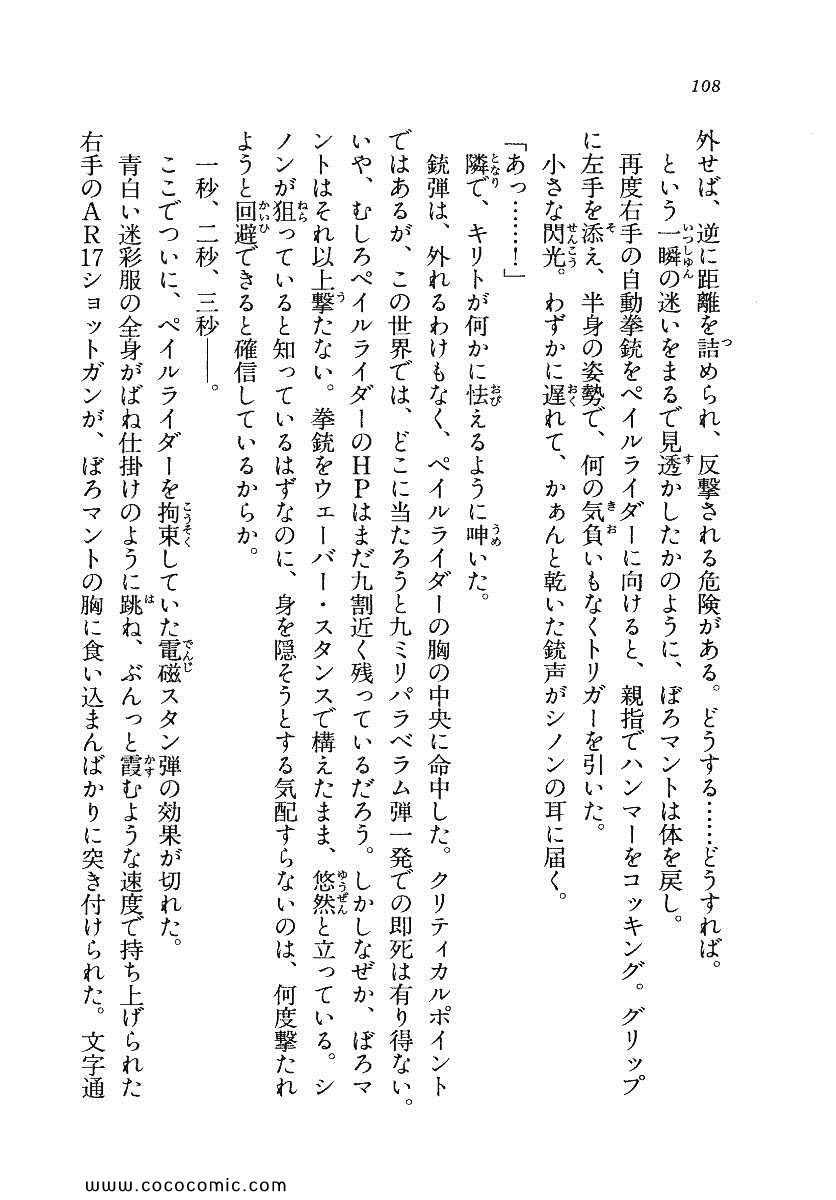 108
外せば、逆に距離を詰められ、反撃される危険がある。どうする……どうすれば。
という一瞬の迷いをまるで見透かしたかのように、ぼろマントは体を戻し。
再度右手の自動拳銃をペイルライダーに向けると、親指でハンマーをコッキング。グリップ
に左手を添え、半身の姿勢で、何の気負いもなくトリガーを引いた。
小さな閃光。わずかに遅れて、かぁんと乾いた銃声がシノンの耳に届く。
「あっ……！」
隣で、キリトが何かに怯えるように呻いた。
銃弾は、外れるわけもなく、ペイルライダーの胸の中央に命中した。クリティカルポイント
ではあるが、この世界では、どこに当たろうと九ミリパラベラム弾一発での即死は有り得ない。
いや、むしろペイルライダーのＨＰはまだ九割近く残っているだろう。しかしなぜか、ぼろマ
ントはそれ以上撃たない。拳銃をウェーバー・スタンスで構えたまま、悠然と立っている。シ
ノンが狙っていると知っているはずなのに、身を隠そうとする気配すらないのは、何度撃たれ
ようと回避できると確信しているからか。
一秒、二秒、三秒――。
ここでついに、ペイルライダーを拘束していた電磁スタン弾の効果が切れた。
青白い迷彩服の全身がばね仕掛けのように跳ね、ぶんっと霞むような速度で持ち上げられた
右手のＡＲ17ショットガンが、ぼろマントの胸に食い込まんばかりに突き付けられた。文字通
www.cococomic.com